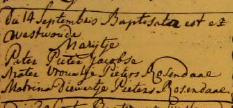 du 14 Septembris Baptisata est ex
westwoude
Marijtje
Pater Pieter Jacobse
Mater Vrouwtje Pieters Rosendaal
Matrina Dieuwertje Pieters Rosendaal